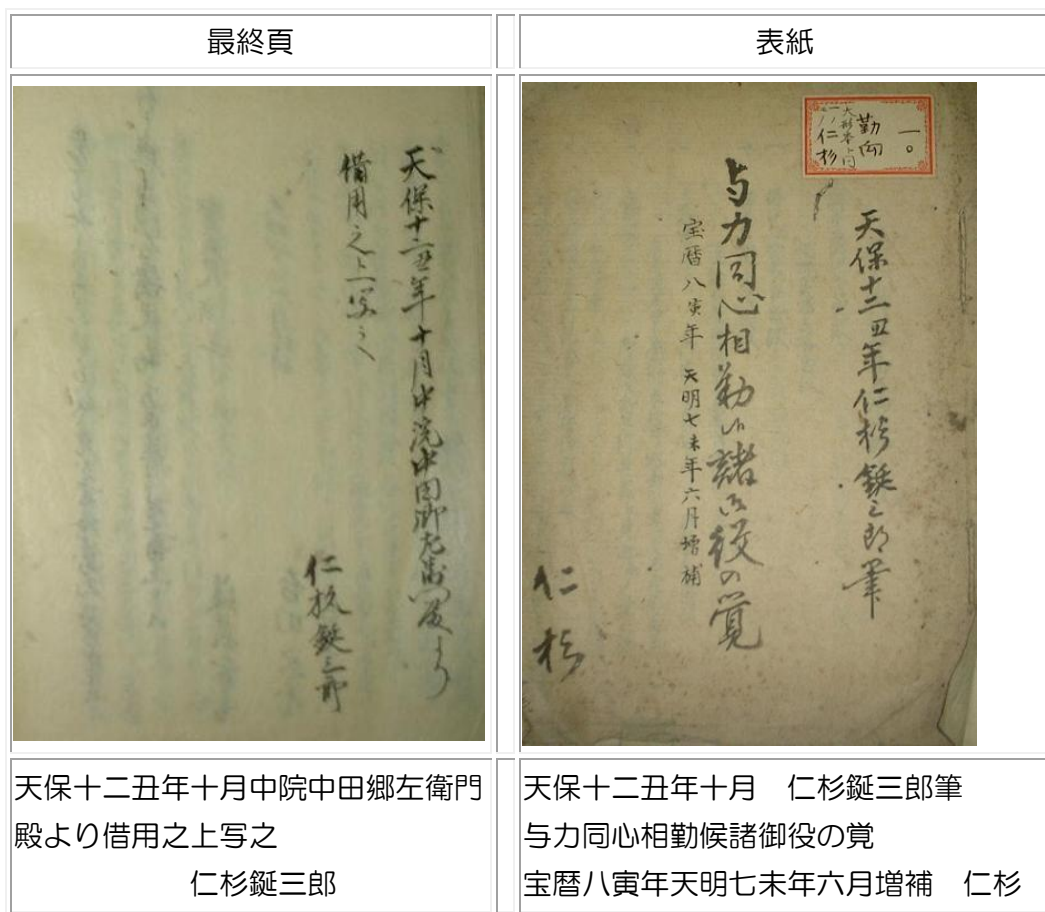 最終頁
表紙
天保十二丑年十月中院中田郷左衛門殿より
借用之上写之
仁杉鋌三郎
一〇
勤向
仁杉
天保十二丑年仁杉鋌三郎筆
与力同心相勤候諸御役の覚
宝暦八寅年 天明七未年六月増補
仁杉
天保十二丑年十月中院中田郷左衛門
殿より借用之上写之
仁杉鋌三郎
天保十二丑年十月　仁杉鋌三郎筆
与力同心相勤候諸御役の覚
宝暦八寅年天明七未年六月増補　仁杉